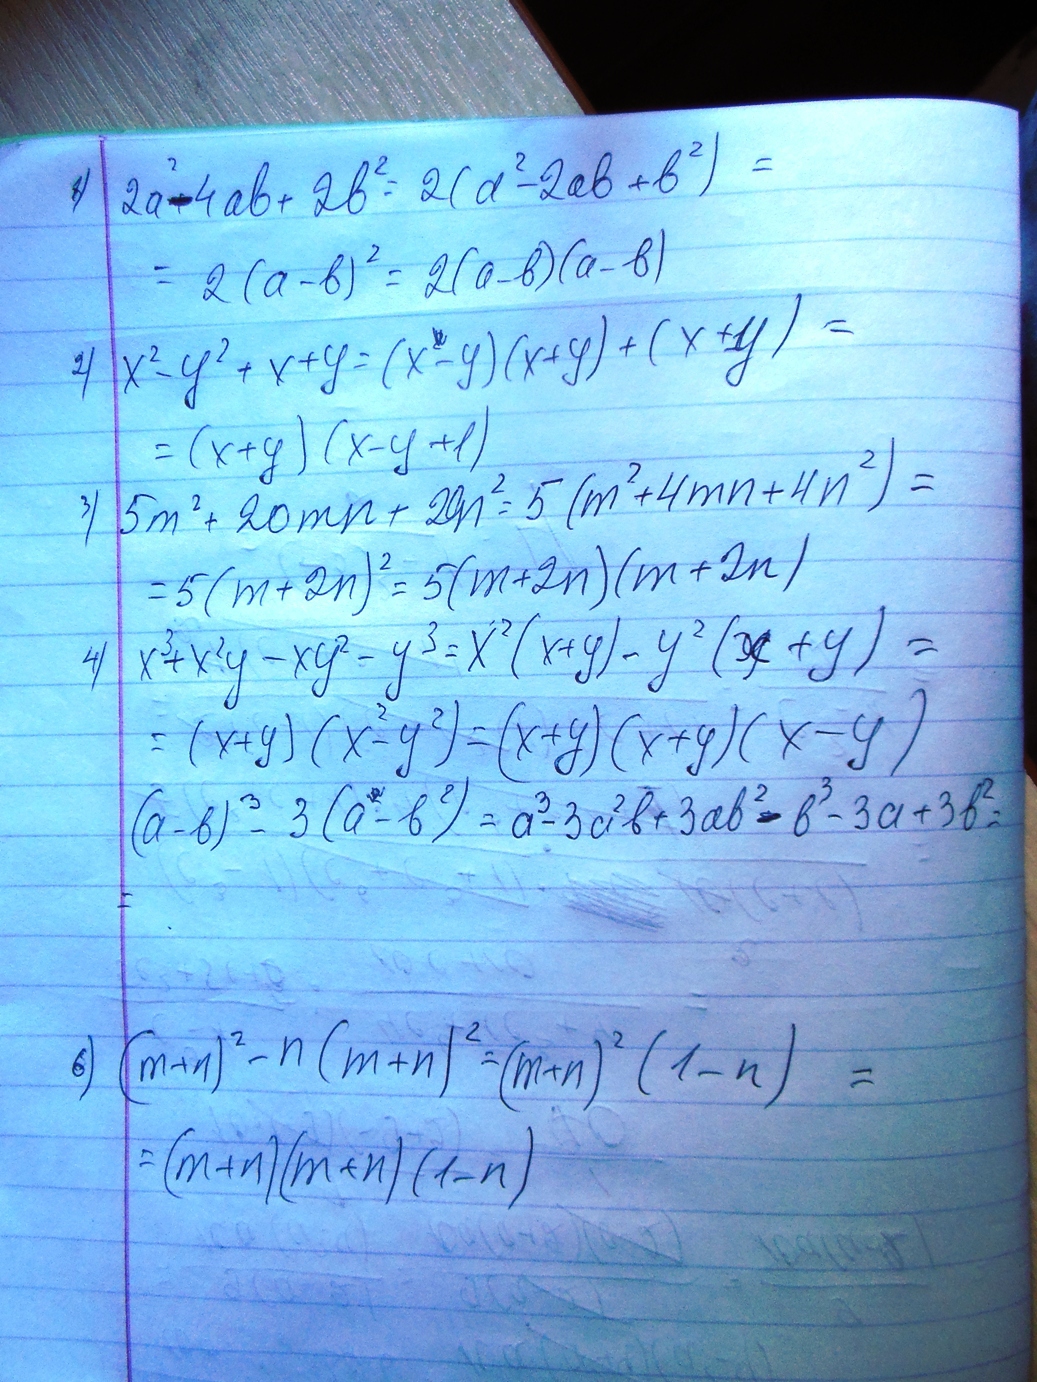 1) 2a²-4ab+2b²=2(a²-2ab+b²)=
=2(a-b)²=2(a-b)(a-b)
2) x²-y²+x+y=(x-y)(x+y)+(x+y)=
=(x+y)(x-y+1)
3) 5m²+20mn+20n²=5(m²+4mn+4n²)=
=5(m+2n)²=5(m+2n)(m+2n)
4) x³+x²y-xy²-y³=x²(x+y)-y²(x+y)=
=(x+y)(x²-y²)=(x+y)(x+y)(x-y)
(a-b)³-3(a-b²)=a³-3a²b+3ab²-b³-3a+3b²=
=
6) (m+n)²-n(m+n)²=(m+n)²(1-n)=
=(m+n)(m+n)(1-n)